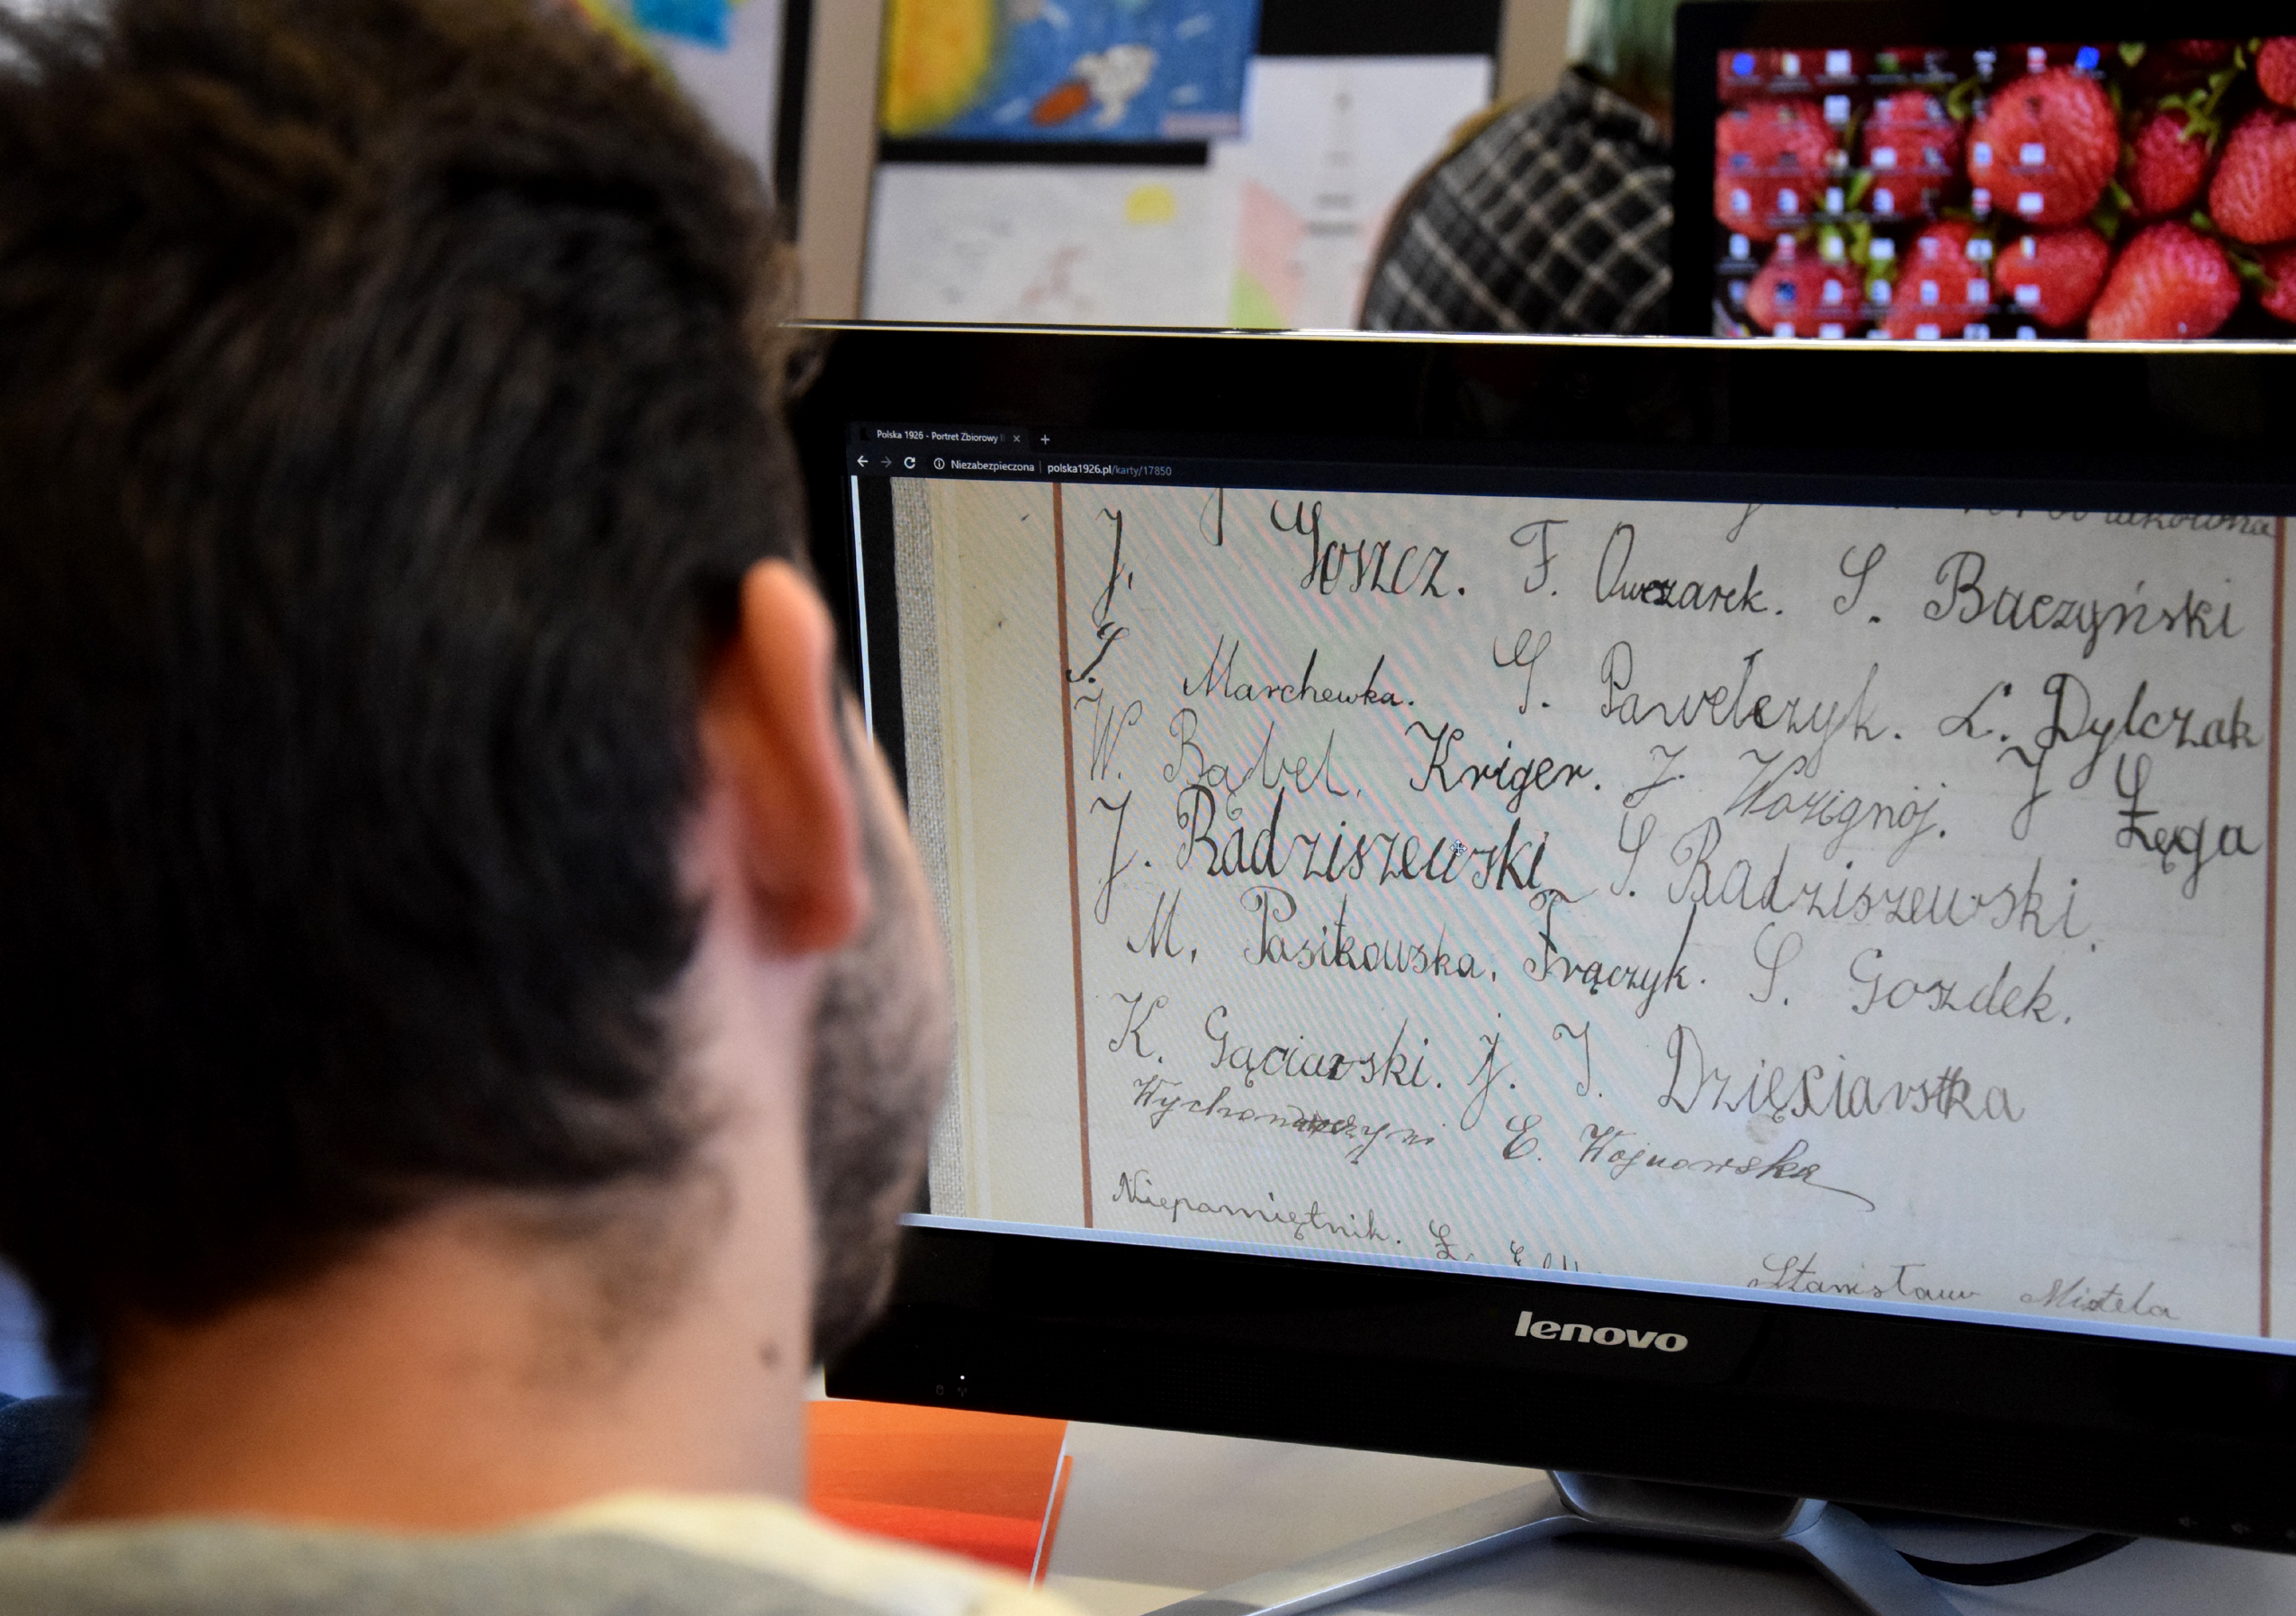 Polska 1926 - Portret Zbiorowy
Niezabezpieczona polska1926.pl/karty/17850
J. Goszcz. F. Owczarek. S. Baczyński
S. Marchewka. S. Pawelczyk. L. Dylczak
W. Bąbel. Kriger. J. J Łęga
J. Radziszewski S. Radziszewski.
M. Pasikowska. Frączyk. S. Gozdek.
K. J. J. Dzięsiawska
Wychowawczyni E. Wojnowska
Niepamiętnik. Stanisław Misztela
lenovo